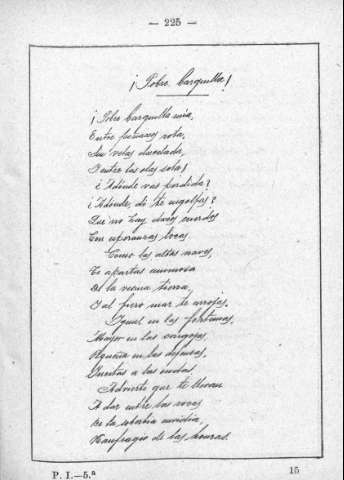 — 225 —
¡Pobre barquilla!
¡Pobre barquilla mía,
Entre peñascos rota,
Sin velas desvelada,
Y entre las olas sola!
¿Adónde vas perdida?
¿Adónde, dí te engolfas?
Que no hay deseos cuerdos
Con esperanzas locas.
Como las altas naves,
Te apartas animosa
De la vecina tierra,
Y al fiero mar te arrojas.
Igual en las fortunas,
Mayor en las congojas,
Pequeña en las defensas,
Incitas a las ondas.
Advierte que te llevan
A dar entre las rocas
De la soberbia envidia,
Naufragio de las honras.
P. I.—5.ª 15